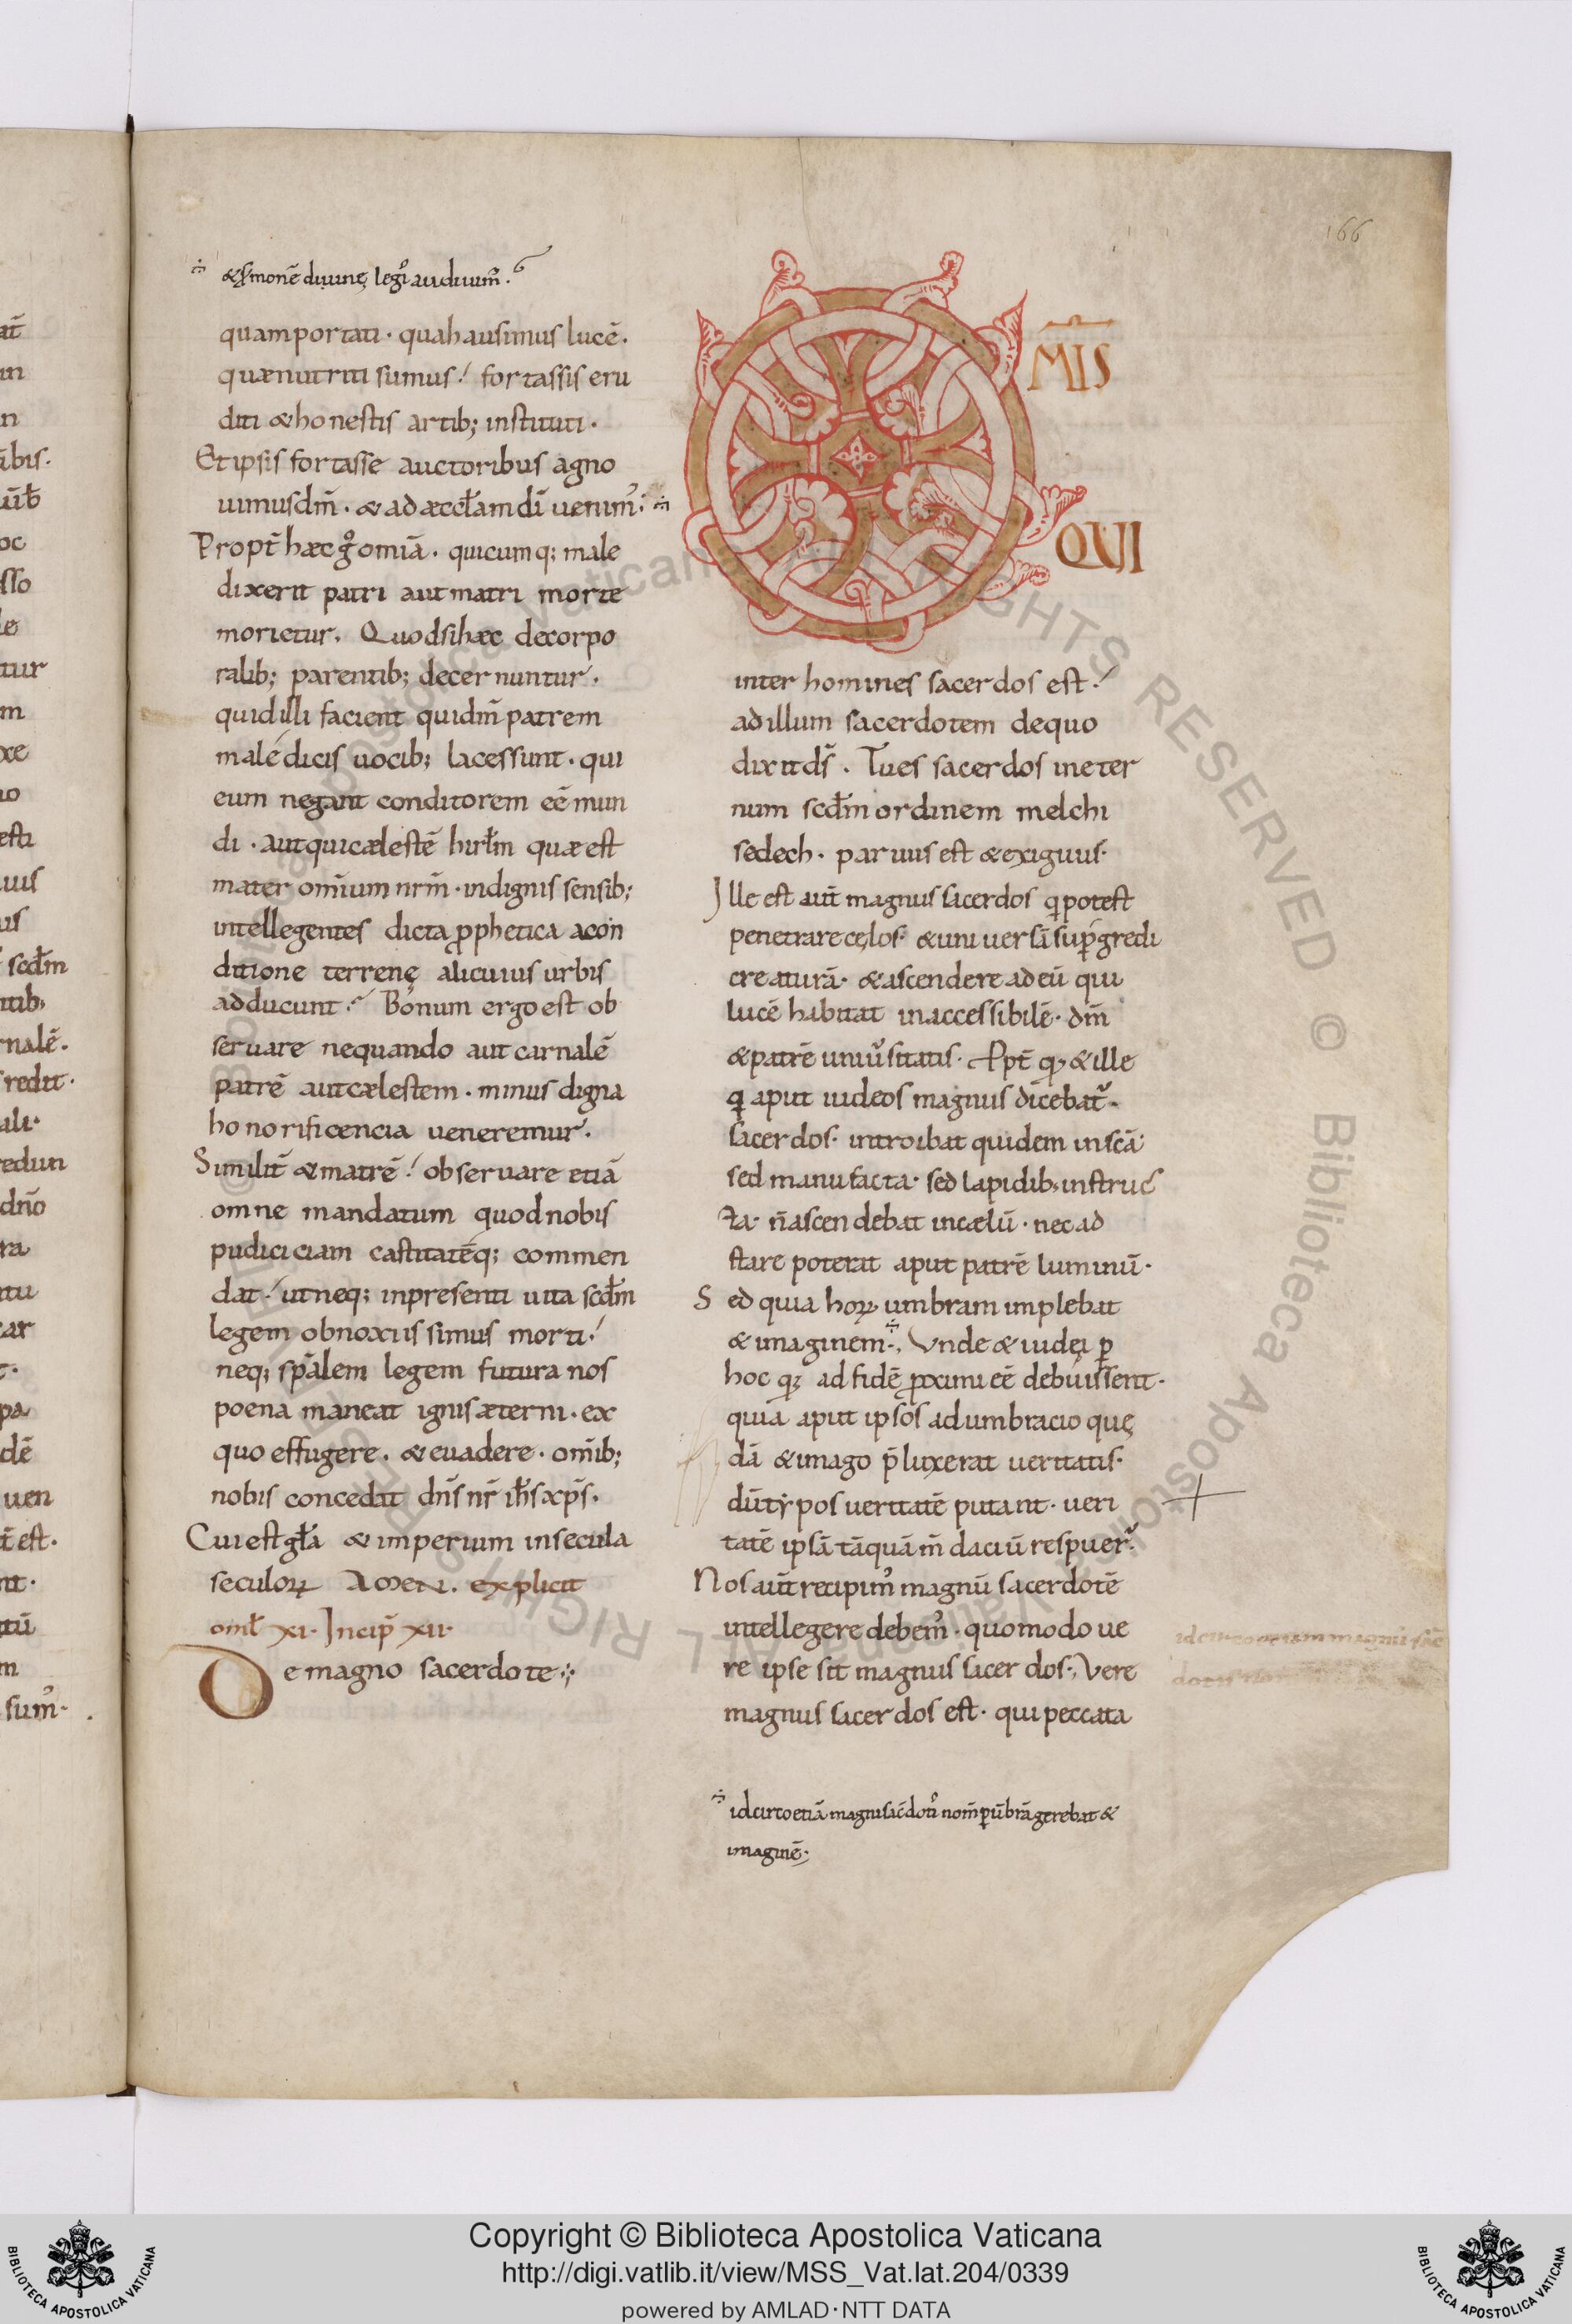 166
& sermonē diuinę legis audiuim᷒.
quamportati · quahausimus lucē.
quænutriti sumus! fortassis eru
diti & honestis artib; instituti.
Et ipsis fortasse auctoribus agno
uimusdm̄ . & ad æccłam dī uenim᷒.
Propt̄ hæc g̊ omīa . quicumq; male
dixerit patri aut matri morte
morietur. Quodsihæc decorpo
ralib; parentib; decernuntur.
quid illi facient quidm̄ patrem
maledicis uocib; lacessunt. qui
eum negant conditorem eē mun
di . aut quicælestē hirłm quæ est
mater omīum nrm̄ . indignis sensib;
intellegentes dicta pphetica acon
ditione terrenę alicuius urbis
adducunt? Bonum ergo est ob
seruare nequando aut carnalē
patrē autcælestem . minus digna
honorificencia ueneremur.
Similit̄ & matrē! obseruare etiā
omne mandatum quodnobis
pudiciciam castitatēq; commen
dat! utneq; inpresenti uita scđm
legem obnoxii simus morti!
neq; spālem legem futura nos
poena maneat ignis æterni . ex
quo effugere . & euadere . omīb;
nobis concedat dn̄s nr̄ ih̄s xp̄s.
Cui est głā & imperium insecula
seculoꝝ AMEN. explicit
omł xi. Incip̄ xii.
De magno sacerdote
OMIS
QVI
inter homines sacerdos est!
ad illum sacerdotem dequo
dixit ds̄ . Tu es sacerdos ineter
num scđm ordinem melchi
sedech . paruus est & exiguus.
Ille est aut̄ magnus sacerdos q potest
penetrare cęlos. & uniuersā supgredi
creaturā. & ascendere ad eū qui
lucē habitat inaccessibilē. dm̄
& patrē uniu᷒sitatis. Ppt̄ qd & ille
q aput iudeos magnus dicebat᷒.
sacerdos. introibat quidem in scā.
sed manufacta. sed lapidib; instruc
ta. n̄ ascendebat incælū . nec ad
stare poterat aput patrē luminū.
Sed quia hoꝝ umbram implebat
& imaginem., Vnde & iudęi p
hoc qd ad fidē pximi eē debuissent.
quia aput ipsos adumbracio quę
dā & imago p̄luxerat ueritatis.
dū typos ueritatē putant. ueri
tatē ipsā tāquā m̄daciū respuer᷒.
Nos aūt recipim᷒ magnū sacerdotē
intellegere debem᷒. quomodo ue
re ipse sit magnus sacerdos., Vere
magnus sacerdos est. qui peccata
idcirco etiam magni sac
idcirco etiā magni sac̄dotis nom̄ p ūbrā gerebat &
imaginē.
āt
in
n
ibis.
uib
oc
sso
le
tur
m
xe
io
esti
uis
us
scđm
ntib;
rnalē.
redit.
ali.
redun
dn̄o
ra
tu
ar
t.
pa
dē
uen
t̄ est.
nt.
tū
m
sum᷒.
Copyright © Biblioteca Apostolica Vaticana
http://digi.vatlib.it/view/MSS_Vat.lat.204/0339
powered by AMLAD·NTT DATA
BIBLIOTECA APOSTOLICA VATICANA
BIBLIOTECA APOSTOLICA VATICANA
© Biblioteca Apostolica Vaticana ALL RIGHTS RESERVED © Biblioteca Apostolica Vaticana ALL RIGHTS RESERVED